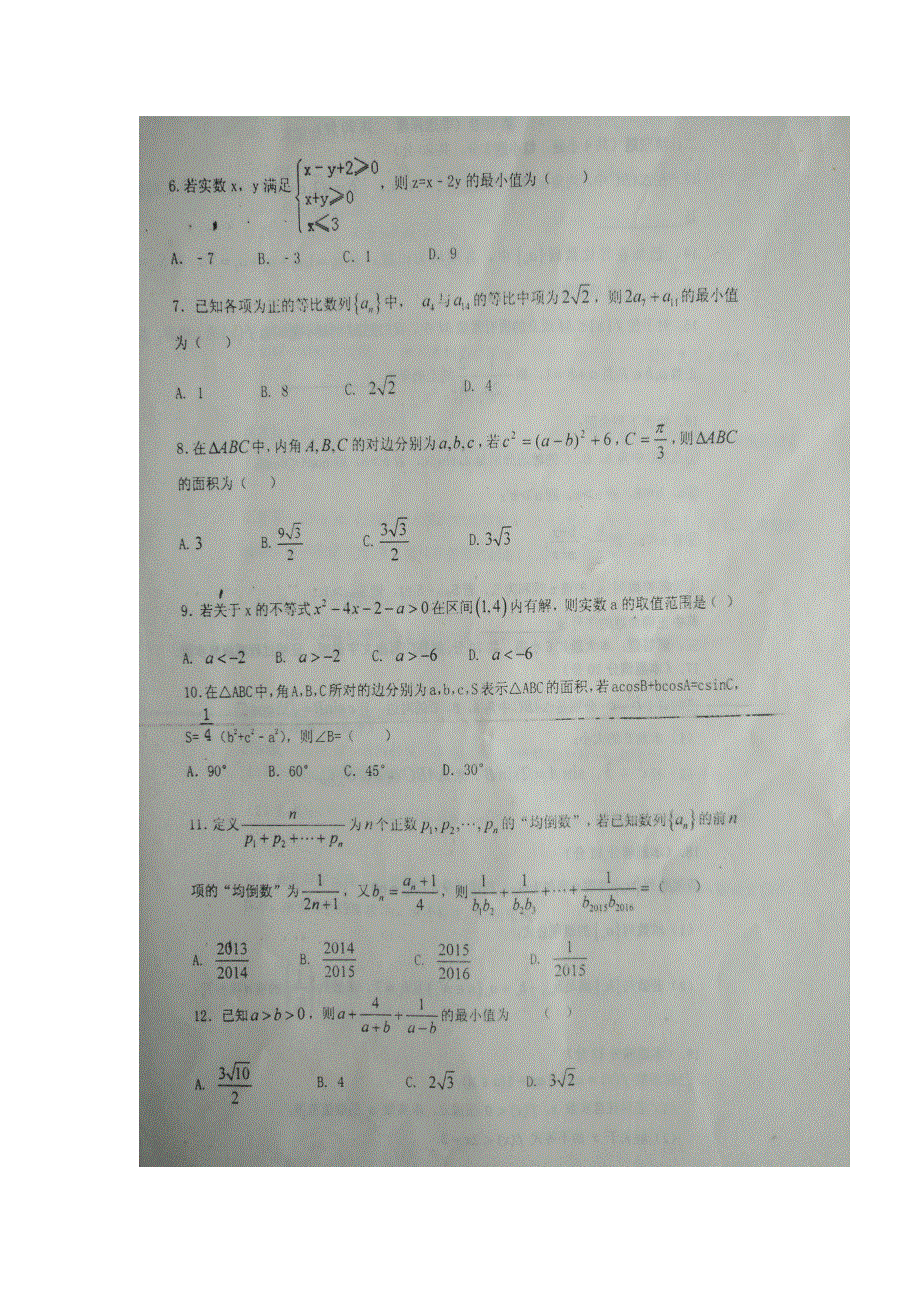 6.若实数 x, y 满足{x-y+2≥0 x+y≥0 x≤3, 则 z=x-2y 的最小值为( )
A. -7 B. -3 C. 1 D. 9
7. 已知各项为正的等比数列{aₙ}中, a₄与a₁₄的等比中项为2√2, 则2a₇+a₁₁的最小值
为( )
A. 1 B. 8 C. 2√2 D. 4
8.在ΔABC中,内角A,B,C的对边分别为a,b,c,若c²=(a-b)²+6, C=π/3,则ΔABC
的面积为( )
A.3 B.9√3/2 C.3√3/2 D.3√3
9. 若关于x的不等式x²-4x-2-a>0在区间(1,4)内有解, 则实数a的取值范围是( )
A. a<-2 B. a>-2 C. a>-6 D. a<-6
10.在△ABC中,角A,B,C所对的边分别为a,b,c,S表示△ABC的面积,若acosB+bcosA=csinC,
S=1/4(b²+c²-a²),则∠B=( )
A. 90° B. 60° C. 45° D. 30°
11.定义n/(p₁+p₂+⋯+pₙ)为n个正数p₁,p₂,⋯,pₙ的“均倒数”,若已知数列{aₙ}的前n
项的“均倒数”为1/(2n+1), 又bₙ=(aₙ+1)/4, 则1/(b₁b₂)+1/(b₂b₃)+⋯+1/(b₂₀₁₅b₂₀₁₆)=( )
A. 2013/2014 B. 2014/2015 C. 2015/2016 D. 1/2015
12. 已知a>b>0, 则a+4/(a+b)+1/(a-b)的最小值为 ( )
A. 3√10/2 B. 4 C. 2√3 D. 3√2